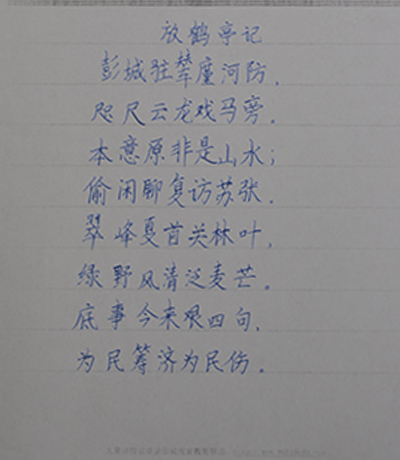 放鹤亭记
彭城驻辇廑河防，
咫尺云龙戏马旁。
本意原非是山水；
偷闲聊复访苏张。
翠峰戛首关林叶，
绿野风清泛麦芒。
底事今来艰四句，
为民筹济为民伤。